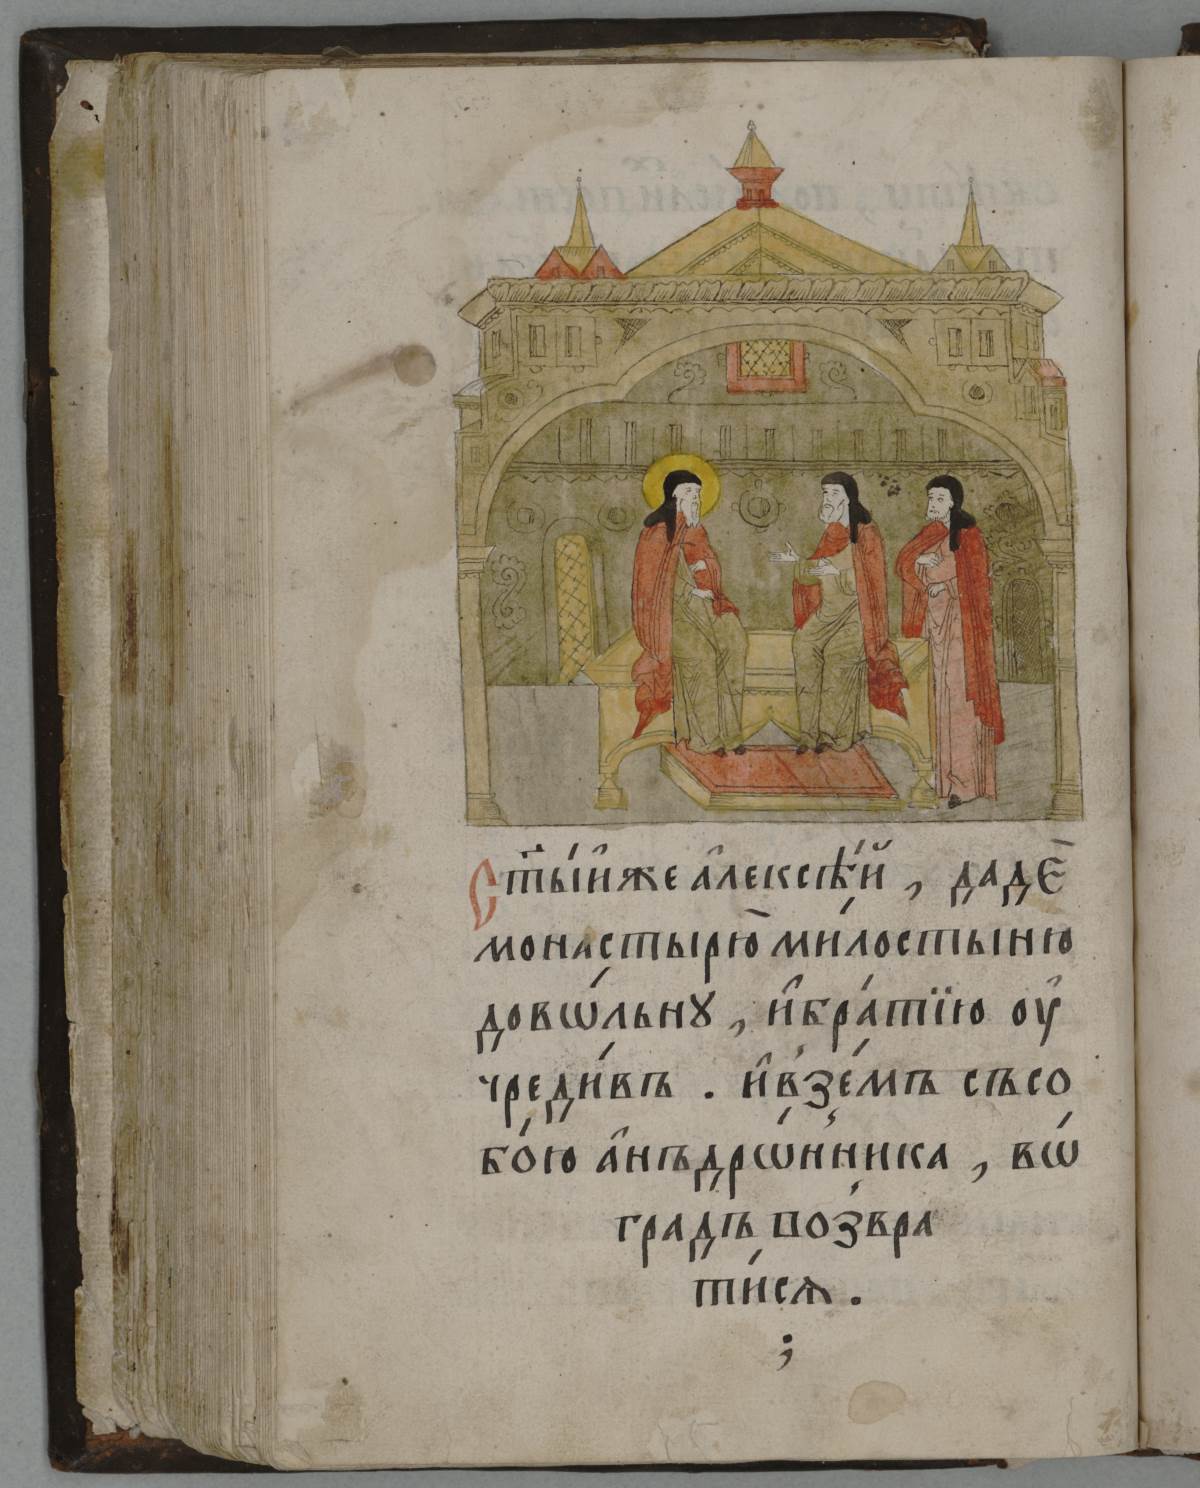 Ст҃ы́и же а҆леѯѣ́й , даде̄
монастырю̄ ми́лостыню
довѡ́льну , и҆бра́тїю оу҆
чреди́въ . и҆взе́мъ съсо
бо́ю а҆нъдрѡ́нника , вѡ́
градъ возвра
ти́ся .
;